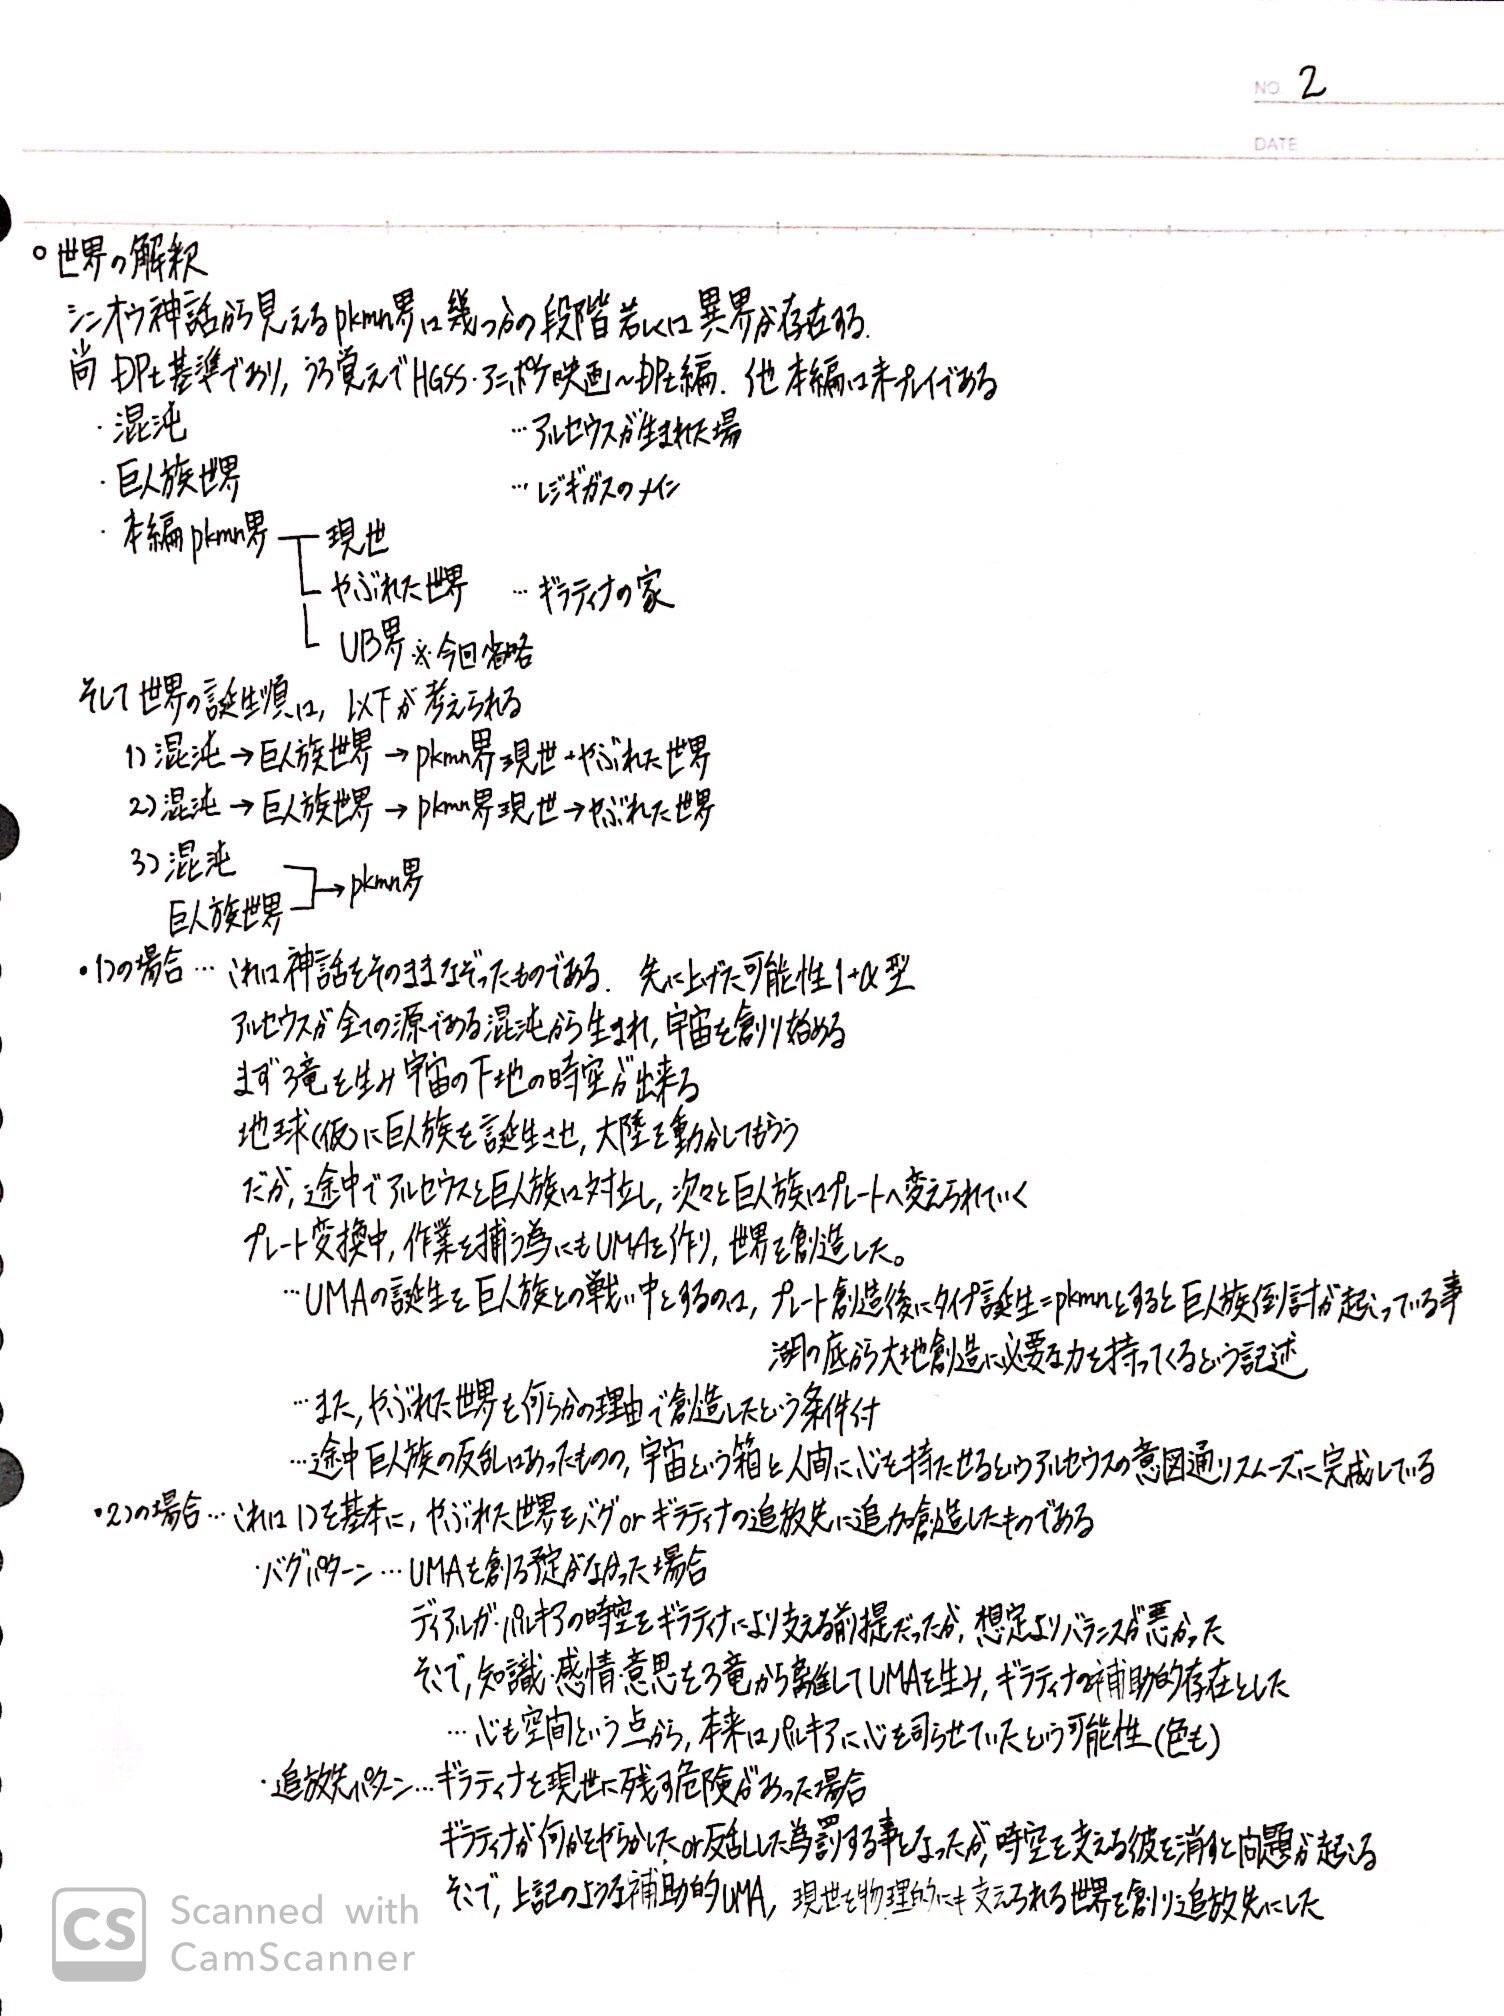 NO 2
DATE
○世界の解釈
シンオウ神話から見えるpkmn界は幾つかの段階若しくは異界が存在する.
尚 DPt基準であり, うろ覚えでHGSS・アニポケ映画~DPt編. 他本編は未プレイである
・混沌 …アルセウスが生まれた場
・巨人族世界 …レジギガスのメイン
・本編pkmn界 現世
やぶれた世界 …ギラティナの家
UB界 ※今回省略
そして世界の誕生順は, 以下が考えられる
1) 混沌→巨人族世界→pkmn界現世+やぶれた世界
2) 混沌→巨人族世界→pkmn界現世→やぶれた世界
3) 混沌
巨人族世界 →pkmn界
・1)の場合…これは神話をそのままなぞったものである. 先に上げた可能性1+α型
アルセウスが全ての源である混沌から生まれ, 宇宙を創り始める
まず3竜を生み宇宙の下地の時空が出来る
地球(仮)に巨人族を誕生させ, 大陸を動かしてもらう
だが, 途中でアルセウスと巨人族は対立し, 次々と巨人族はプレートへ変えられていく
プレート変換中, 作業を捕う為にもUMAを作り, 世界を創造した。
…UMAの誕生を巨人族との戦い中とするのは, プレート創造後にタイプ誕生=pkmnとすると巨人族倒討が起こっている事
湖の底から大地創造に必要な力を持ってくるという記述
…また, やぶれた世界を何らかの理由で創造したという条件付
…途中巨人族の反乱はあったものの, 宇宙という箱と人間に心を持たせるというアルセウスの意図通りスムーズに完成している
・2)の場合…これは1)を基本に, やぶれた世界をバグorギラティナの追放先に追加創造したものである
・バグパターン…UMAを創る予定がなかった場合
ディアルガ・パルキアの時空をギラティナにより支える前提だったが, 想定よりバランスが悪かった
そこで, 知識・感情・意思を3竜から離してUMAを生み, ギラティナの補助的存在とした
…心も空間という点から, 本来はパルキアに心を司らせていたという可能性(色も)
・追放先パターン…ギラティナを現世に残す危険があった場合
ギラティナが何かをやらかしたor反乱した為罰する事となったが, 時空を支える彼を消すと問題が起こる
そこで, 上記のような補助的UMA, 現世を物理的にも支えられる世界を創り追放先にした
CS Scanned with
CamScanner